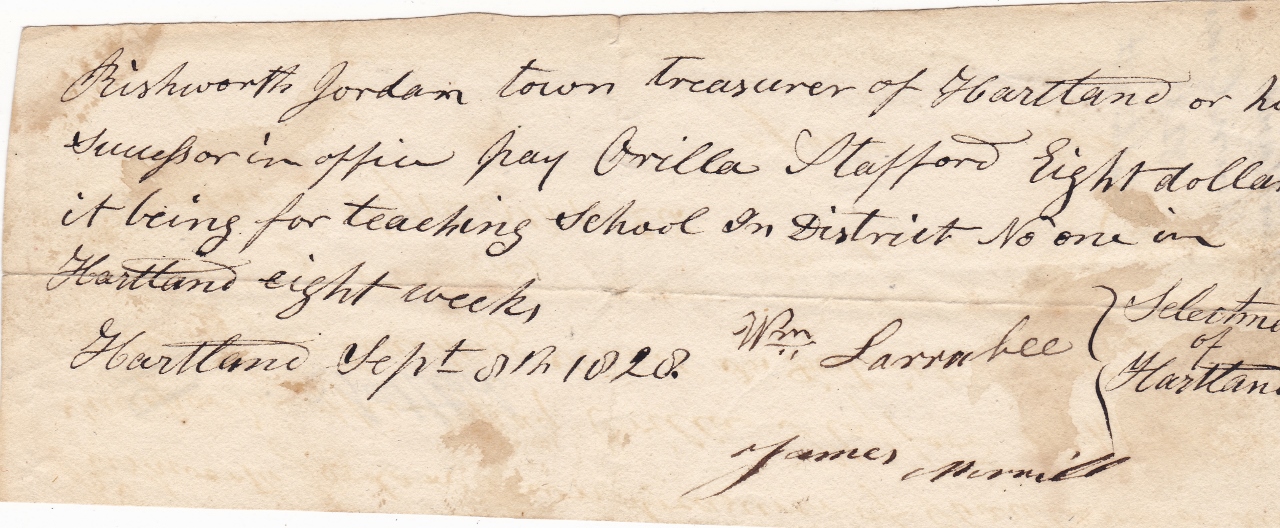 Rishworth Jordan town treasurer of Hartland or hi
successor in office pay Orilla Stafford Eight dollar
it being for teaching School In District No one in
Hartland eight weeks
Hartland Sept 8th 1828.
Wm Larrabee
James Morrill
Selectme
of
Hartland